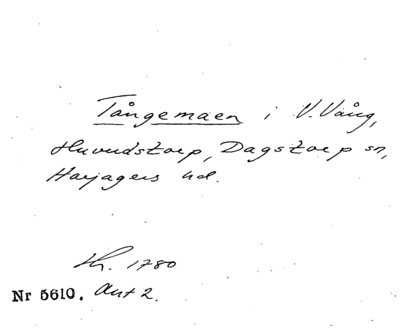 Tångemaen i V. Vång,
Huvudstorp, Dagstorp sn,
Harjagers hd.
Kh. 1780
Nr 5610. Akt 2.